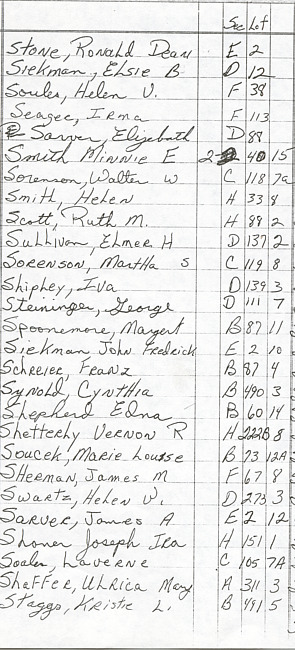 Sec Lot
Stone, Ronald Dean E 2
Siekman, Elsie B D 12
Soules, Helen V. F 38
Seagee, Irma F 113
Sarver, Elizabeth D 88
Smith Minnie E 2 40 15
Sorenson, Walter W C 118 7a
Smith, Helen H 33 8
Scott, Ruth M. H 88 2
Sullivan, Elmer H D 137 2
Sorenson, Martha S C 119 8
Shipley, Iva D 139 3
Steininger, George D 111 7
Spoonemore, Margert B 87 11
Siekman John Fredrick E 2 10
Schreier, Franz B 87 4
Synold Cynthia B 490 3
Shepherd Edna B 60 14
Shetterly Vernon R H 222B 8
Soucek, Marie Louise B 73 12A
Sherman, James M F 67 8
Swartz, Helen V. D 273 3
Sarver, James A E 2 12
Shoner Joseph Ira H 151 1
Soaler, Laverne C 105 7A
Shaffer, Ulrica Mary A 311 3
Staggs, Kristie L. B 491 5